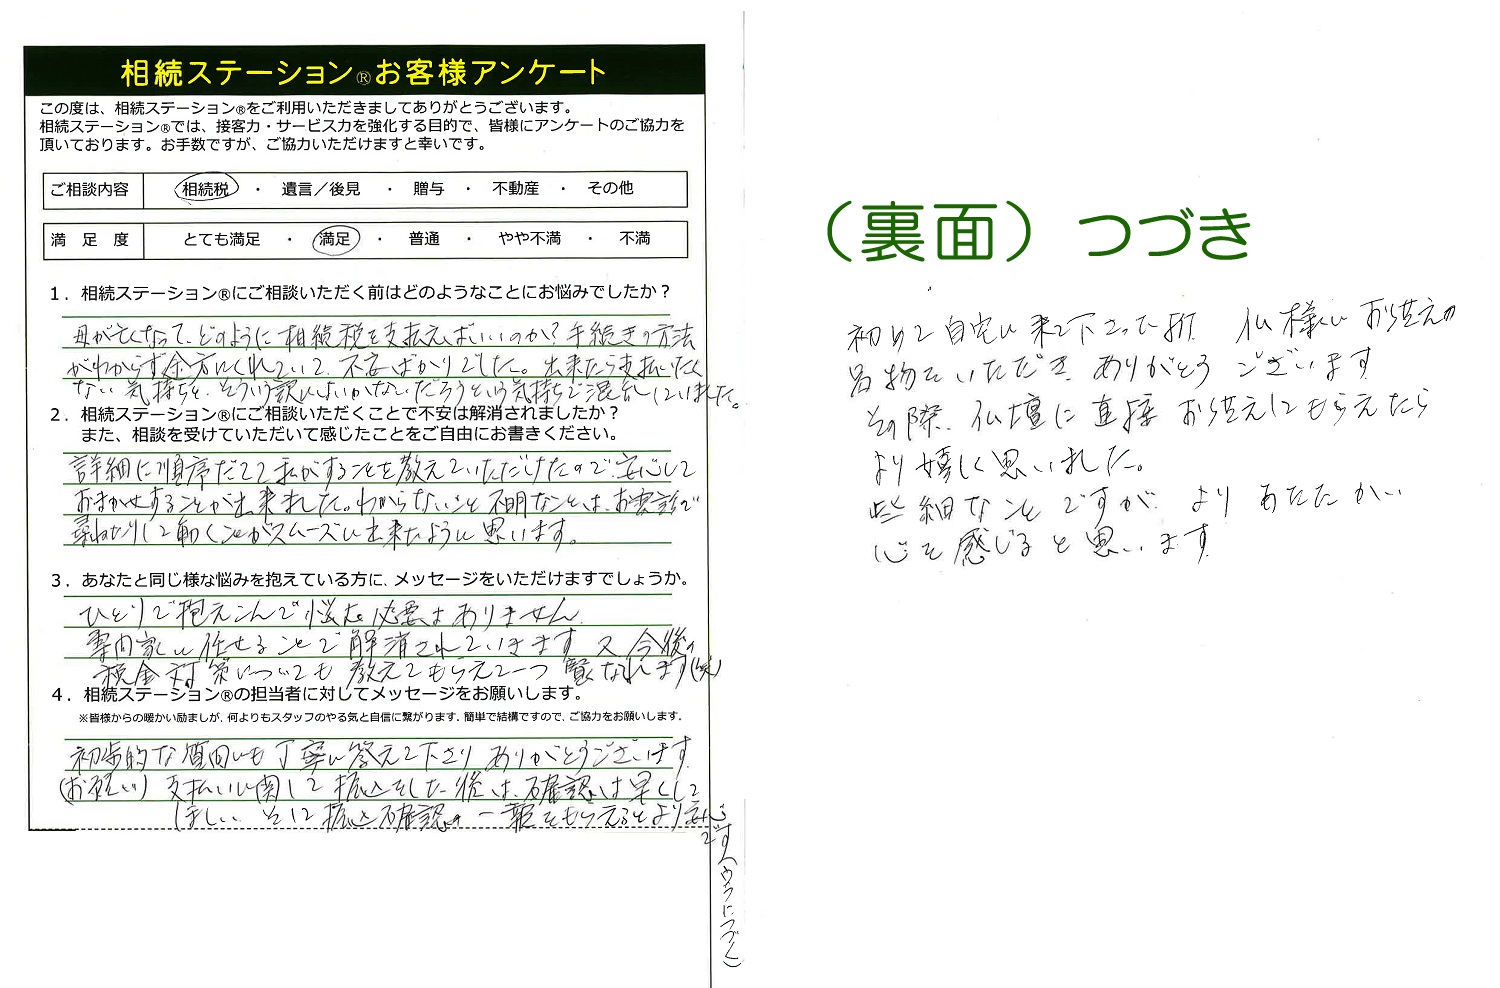 相続ステーション®お客様アンケート
この度は、相続ステーション®をご利用いただきましてありがとうございます。
相続ステーション®では、接客力・サービス力を強化する目的で、皆様にアンケートのご協力を
頂いております。お手数ですが、ご協力いただけますと幸いです。
ご相談内容 相続税 ・ 遺言／後見 ・ 贈与 ・ 不動産 ・ その他
満 足 度 とても満足 ・ 満足 ・ 普通 ・ やや不満 ・ 不満
1．相続ステーション®にご相談いただく前はどのようなことにお悩みでしたか？
母が亡くなって、どのように相続税を支払えばいいのか？手続きの方法
がわからず途方にくれていて、不安ばかりでした。出来たら支払いたく
ない気持ちと、そういう訳にはいかないだろうという気持ちで混乱していました。
2．相続ステーション®にご相談いただくことで不安は解消されましたか？
また、相談を受けていただいて感じたことをご自由にお書きください。
詳細に順序だてて私がすることを教えていただけたので、安心して
おまかせすることが出来ました。わからないこと不明なことは、お電話で
尋ねたりして動くことがスムーズに出来たように思います。
3．あなたと同じ様な悩みを抱えている方に、メッセージをいただけますでしょうか。
ひとりで抱えこんで悩む必要はありません
専門家に任せることで解消されていきます 又今後の
税金対策についても教えてもらえて一つ賢くなれます(笑)
4．相続ステーション®の担当者に対してメッセージをお願いします。
※皆様からの暖かい励ましが、何よりもスタッフのやる気と自信に繋がります。簡単で結構ですので、ご協力をお願いします。
初歩的な質問にも丁寧に答えて下さりありがとうございます
(お願い) 支払いに関して振込をした後は、確認は早くして
ほしい。そして振込確認の一報をもらえるとより安心
です(ウラにつづく)
（裏面）つづき
初めて自宅に来て下さった折 仏様にお供えの
品物をいただき、ありがとうございます
その際、仏壇に直接お供えしてもらえたら
より嬉しく思いました。
些細なことですが、よりあたたかい
心を感じると思います